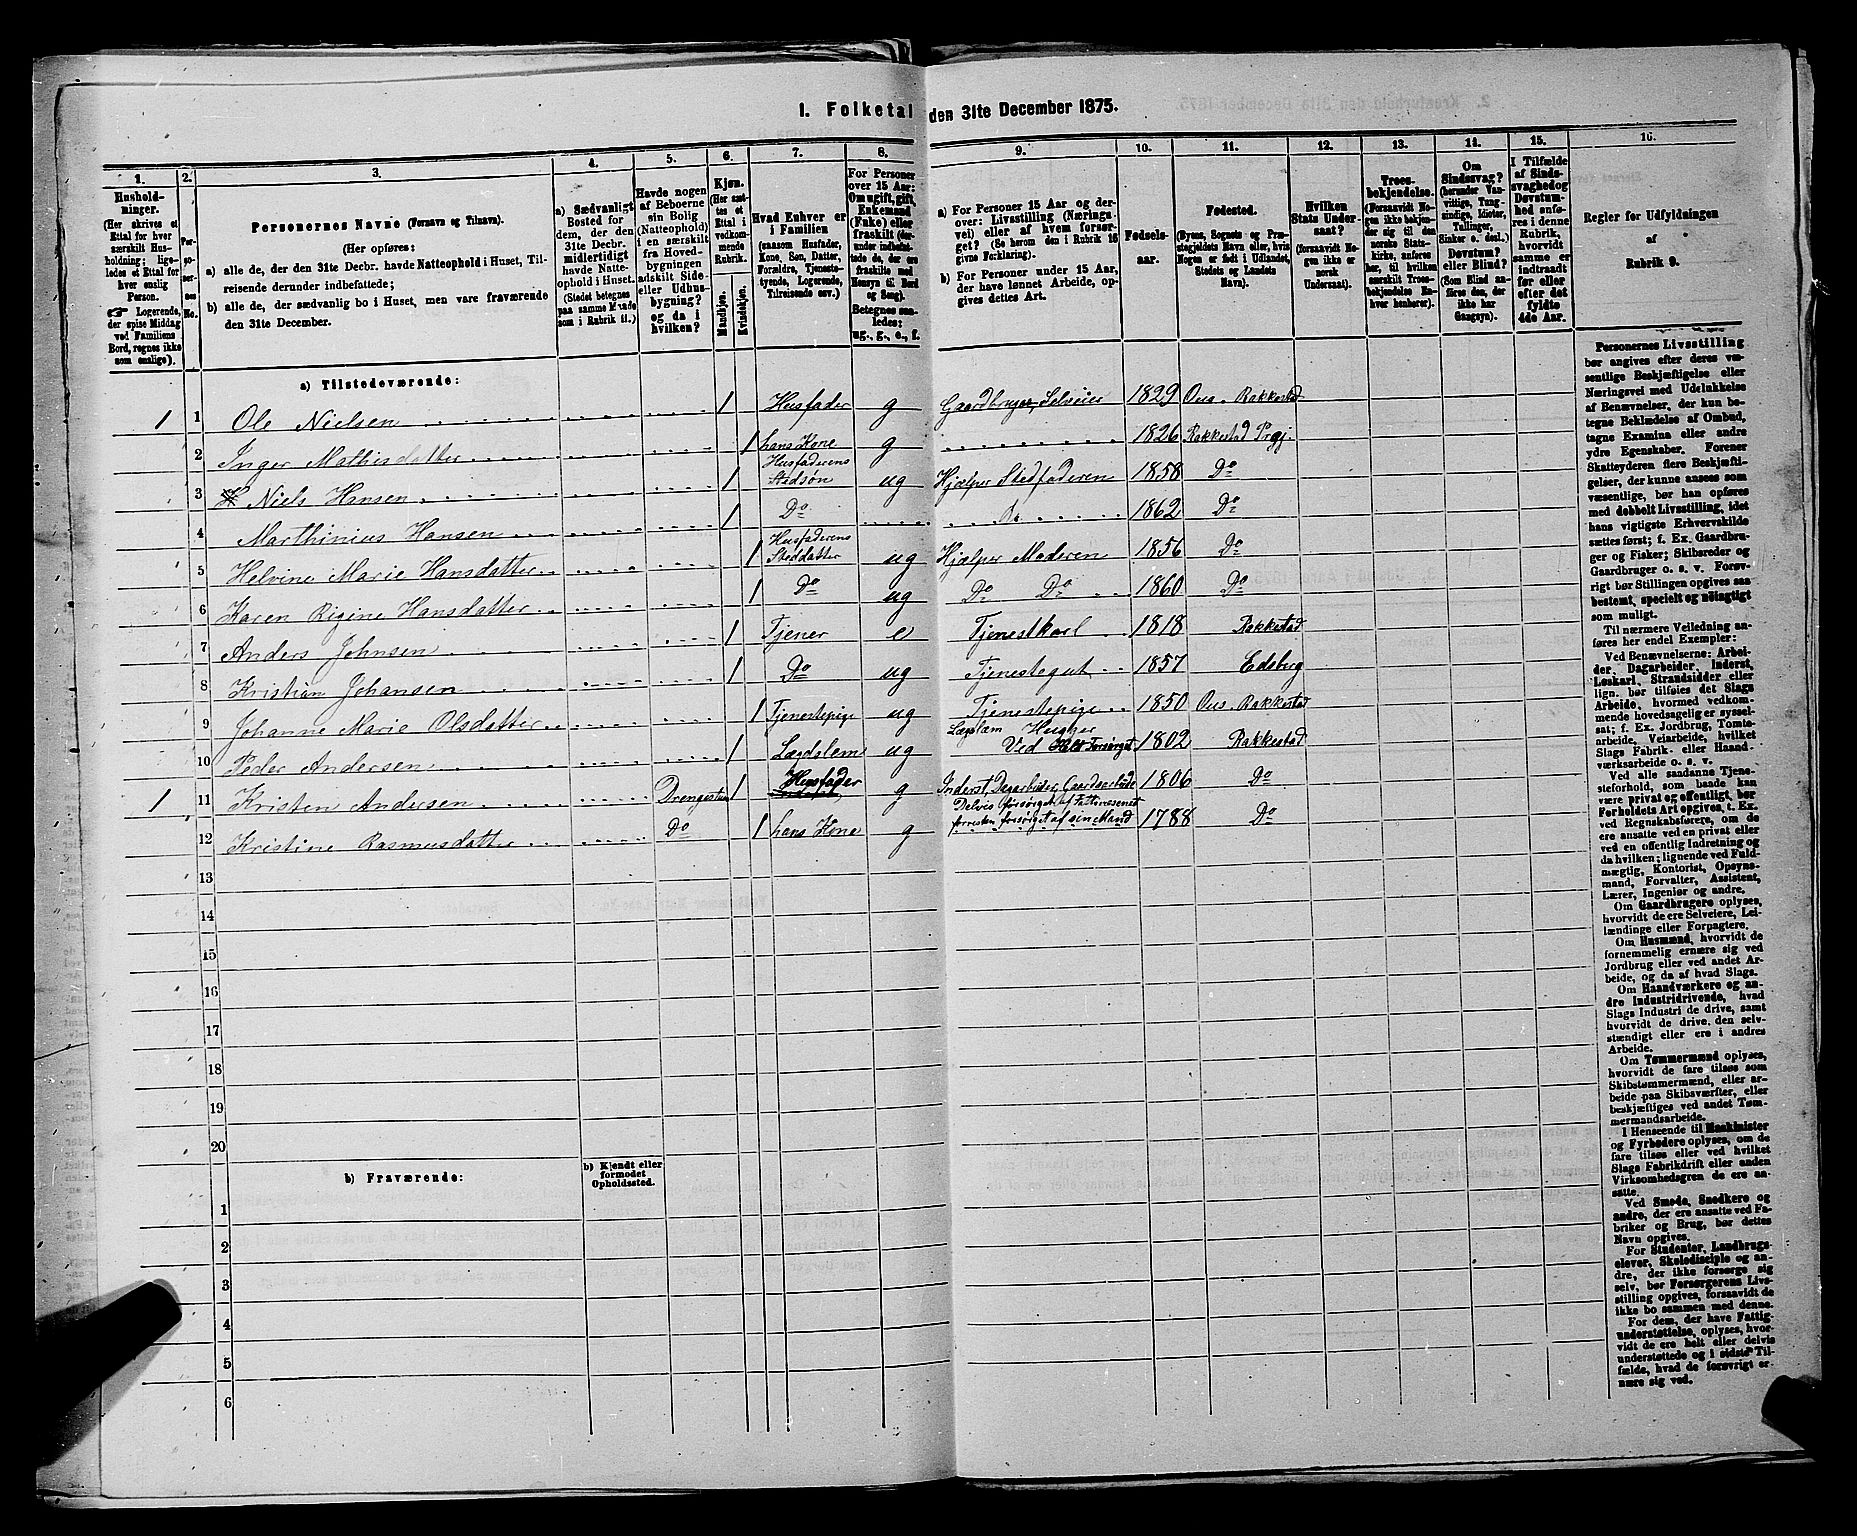 1. Folketal den 31te December 1875.
1.
Hushold-
ninger.
(Her skrives et
Ettal for hver
særskilt Hus-
holdning; lige-
ledes et Ettal for
hver enslig
Person.
☞ Logerende,
der spise Middag
ved Familiens
Bord, regnes ikke
som enslige).
2.
Per-
so-
ner-
nes
No.
3.
Personernes Navne (Fornavn og Tilnavn).
(Her opføres:
a) alle de, der den 31te Decbr. havde Natteophold i Huset, Til-
reisende derunder indbefattede;
b) alle de, der sædvanlig bo i Huset, men vare fraværende
den 31te December.
4.
a) Sædvanligt
Bosted for
dem, der den
31te Decbr.
midlertidigt
havde Natte-
ophold i Huset.
(Stedet betegnes
paa samme Maade
som i Rubrik 11.)
5.
Havde nogen
af Beboerne
sin Bolig
(Natteophold)
i en særskilt
fra Hoved-
bygningen
adskilt Side-
eller Udhus-
bygning?
og da i
hvilken?
6.
Kjøn.
(Her sæt-
tes et
Ettal i
vedkom-
mende
Rubrik.
Mandkjøn.
Kvindekjøn.
7.
Hvad Enhver er
i Familien
(saasom Husfader,
Kone, Søn, Datter,
Forældre, Tjeneste-
tyende, Logerende,
Tilreisende osv.)
8.
For Personer
over 15 Aar:
Om ugift, gift,
Enkemand
(Enke) eller
fraskilt (der-
under indbefat-
tede de, der ere
fraskilte med
Hensyn til Bord
og Seng).
Betegnes saa-
ledes:
ug., g., e., f.
9.
a) For Personer 15 Aar og der-
over: Livsstilling (Nærings-
vei) eller af hvem forsør-
get? (Se herom den i Rubrik 16
givne Forklaring).
b) For Personer under 15 Aar,
der have lønnet Arbeide, op-
gives dettes Art.
10.
Fødsels-
aar.
11.
Fødested.
(Byens, Sognets og Præ-
stegjeldets Navn eller, hvis
Nogen er født i Udlandet,
Stedets og Landets
Navn).
12.
Hvilken
Stats Under-
saat?
(forsaavidt No-
gen ikke er
norsk
Undersaat).
13.
Troes-
bekjendelse.
(Forsaavidt No-
gen ikke bekjen-
der sig til den
norske Stats-
kirke, anføres
her, til hvilken
særskilt Troes-
bekjendelse En-
hver henhører).
14.
Om
Sindssvag?
(herunder Van-
vittige, Tung-
sindige, Idioter,
Tullinger,
Sinker o. desl.)
Døvstum?
eller Blind?
(Som Blind an-
føres den, der
ikke har
Gangsyn).
15.
I Tilfælde
af Sinds-
svaghed og
Døvstum-
hed anfø-
res i denne
Rubrik,
hvorvidt
samme er
indtraadt
før eller
efter det
fyldte
4de Aar.
16.
Regler for Udfyldningen
af
Rubrik 9.
a) Tilstedeværende:
1 1 Ole Nielsen 1 Husfader g Gaardbruger, Selveier 1829 Ous. Rakkestad
2 Inger Mathisdatter 1 hans Kone g 1826 Rakkestad Prgj.
3 Niels Hansen 1 Husfaderens Stedsøn ug Hjælper Stedfaderen 1858 Do
4 Marthinius Hansen 1 Do Do 1862 Do
5 Helvine Marie Hansdatter 1 Husfaderens Steddatter ug Hjælper Moderen 1856 Do
6 Karen Rigine Hansdatter 1 Do ug Do Do 1860 Do
7 Anders Johnsen 1 Tjener e Tjenestkarl 1818 Rakkestad
8 Kristian Johansen 1 Do ug Tjenestegut 1857 Edsberg
9 Johanne Marie Olsdatter 1 Tjenestepige ug Tjenestepige 1850 Ous. Rakkestad
10 Peder Andersen 1 Lægdslem ug Lægslem Hugger Ved Helt Forsørget 1802 Rakkestad
1 11 Kristen Andersen Drengestuen 1 Husfader g Inderst, Dagarbeider, Gaardarbeide Delvis forsørget af Fattivæsenet 1806 Do
12 Kristine Rasmusdatter Do 1 hans Kone g forresten forsørget af sin Mand 1788 Do
13
14
15
16
17
18
19
20
b) Fraværende:
b) Kjendt eller
formodet
Opholdssted.
1
2
3
4
5
6
Personernes Livsstilling
bør angives efter deres væ-
sentlige Beskjæftigelse eller
Næringsvei med Udelukkelse
af Benævnelser, der kun be-
tegne Beklædelse af Ombud,
tagne Examina eller andre
ydre Egenskaber. Forener
Skatteyderen flere Beskjæfti-
gelser, der kunne ansees som
væsentlige, bør han opføres
med dobbelt Livsstilling, idet
hans vigtigste Erhvervskilde
sættes først; f. Ex. Gaardbru-
ger og Fisker; Skibsreder og
Gaardbruger o. s. v. Forøv-
rigt bør Stillingen opgives saa
bestemt, specielt og nøiagtigt
som muligt.
Til nærmere Veiledning an-
føres her endel Exempler:
Ved Benævnelserne: Arbei-
der, Dagarbeider, Inderst,
Løskarl, Strandsidder eller
lign. bør tilføies det Slags
Arbeide, hvormed vedkom-
mende hovedsagelig er syssel-
sat; f. Ex. Jordbrug, Tomte-
arbeide, Veiarbeide, hvilket
Slags Fabrik- eller Haand-
værksarbeide o. s. v.
Ved alle saadanne Tjene-
steforhold, som baade kan
være privat og offentligt, bør
Forholdets Art opgives, t. Ex.
ved Regnskabsførere, om de
ere ansatte ved en privat eller
ved en offentlig Indretning og
da hvilken; lignende ved Fuld-
mægtig, Kontorist, Opsyns-
mand, Forvalter, Assistent,
Lærer, Ingeniør og andre.
Om Gaardbrugere oplyses,
hvorvidt de ere Selveiere, Lei-
lændinge eller Forpagtere.
Om Husmænd, hvorvidt de
fornemmelig ernære sig ved
Jordbrug eller ved andet Ar-
beide, og da af hvad Slags.
Om Haandværkere og an-
dre Industridrivende, hvad
Slags Industri de drive, samt
hvorvidt de drive den selv-
stændigt eller ere i andres
Arbeide.
Om Tømmermænd oplyses,
hvorvidt de fare tilsøs som
Skibstømmermænd, eller ar-
beide paa Skibsværfter, eller
beskjæftiges ved andet Tøm-
mermandsarbeide.
I Henseende til Maskinister
og Fyrbødere oplyses, om de
fare tilsøs eller ved hvilket
Slags Fabrikdrift eller anden
Virksomhedsgren de ere an-
satte.
Ved Smede, Snedkere og
andre, der ere ansatte ved Fa-
briker og Brug, bør dettes
Navn opgives.
For Studenter, Landbrugs-
elever, Skoledisciple og an-
dre, der ikke forsørge sig
selv, bør Forsørgerens Livs-
stilling opgives, forsaavidt de
ikke bo sammen med denne.
For dem, der have Fattig-
understøttelse, oplyses, hvor-
vidt de ere helt eller delvis
understøttede og i sidste Til-
fælde, hvad de forøvrigt er-
nære sig ved.